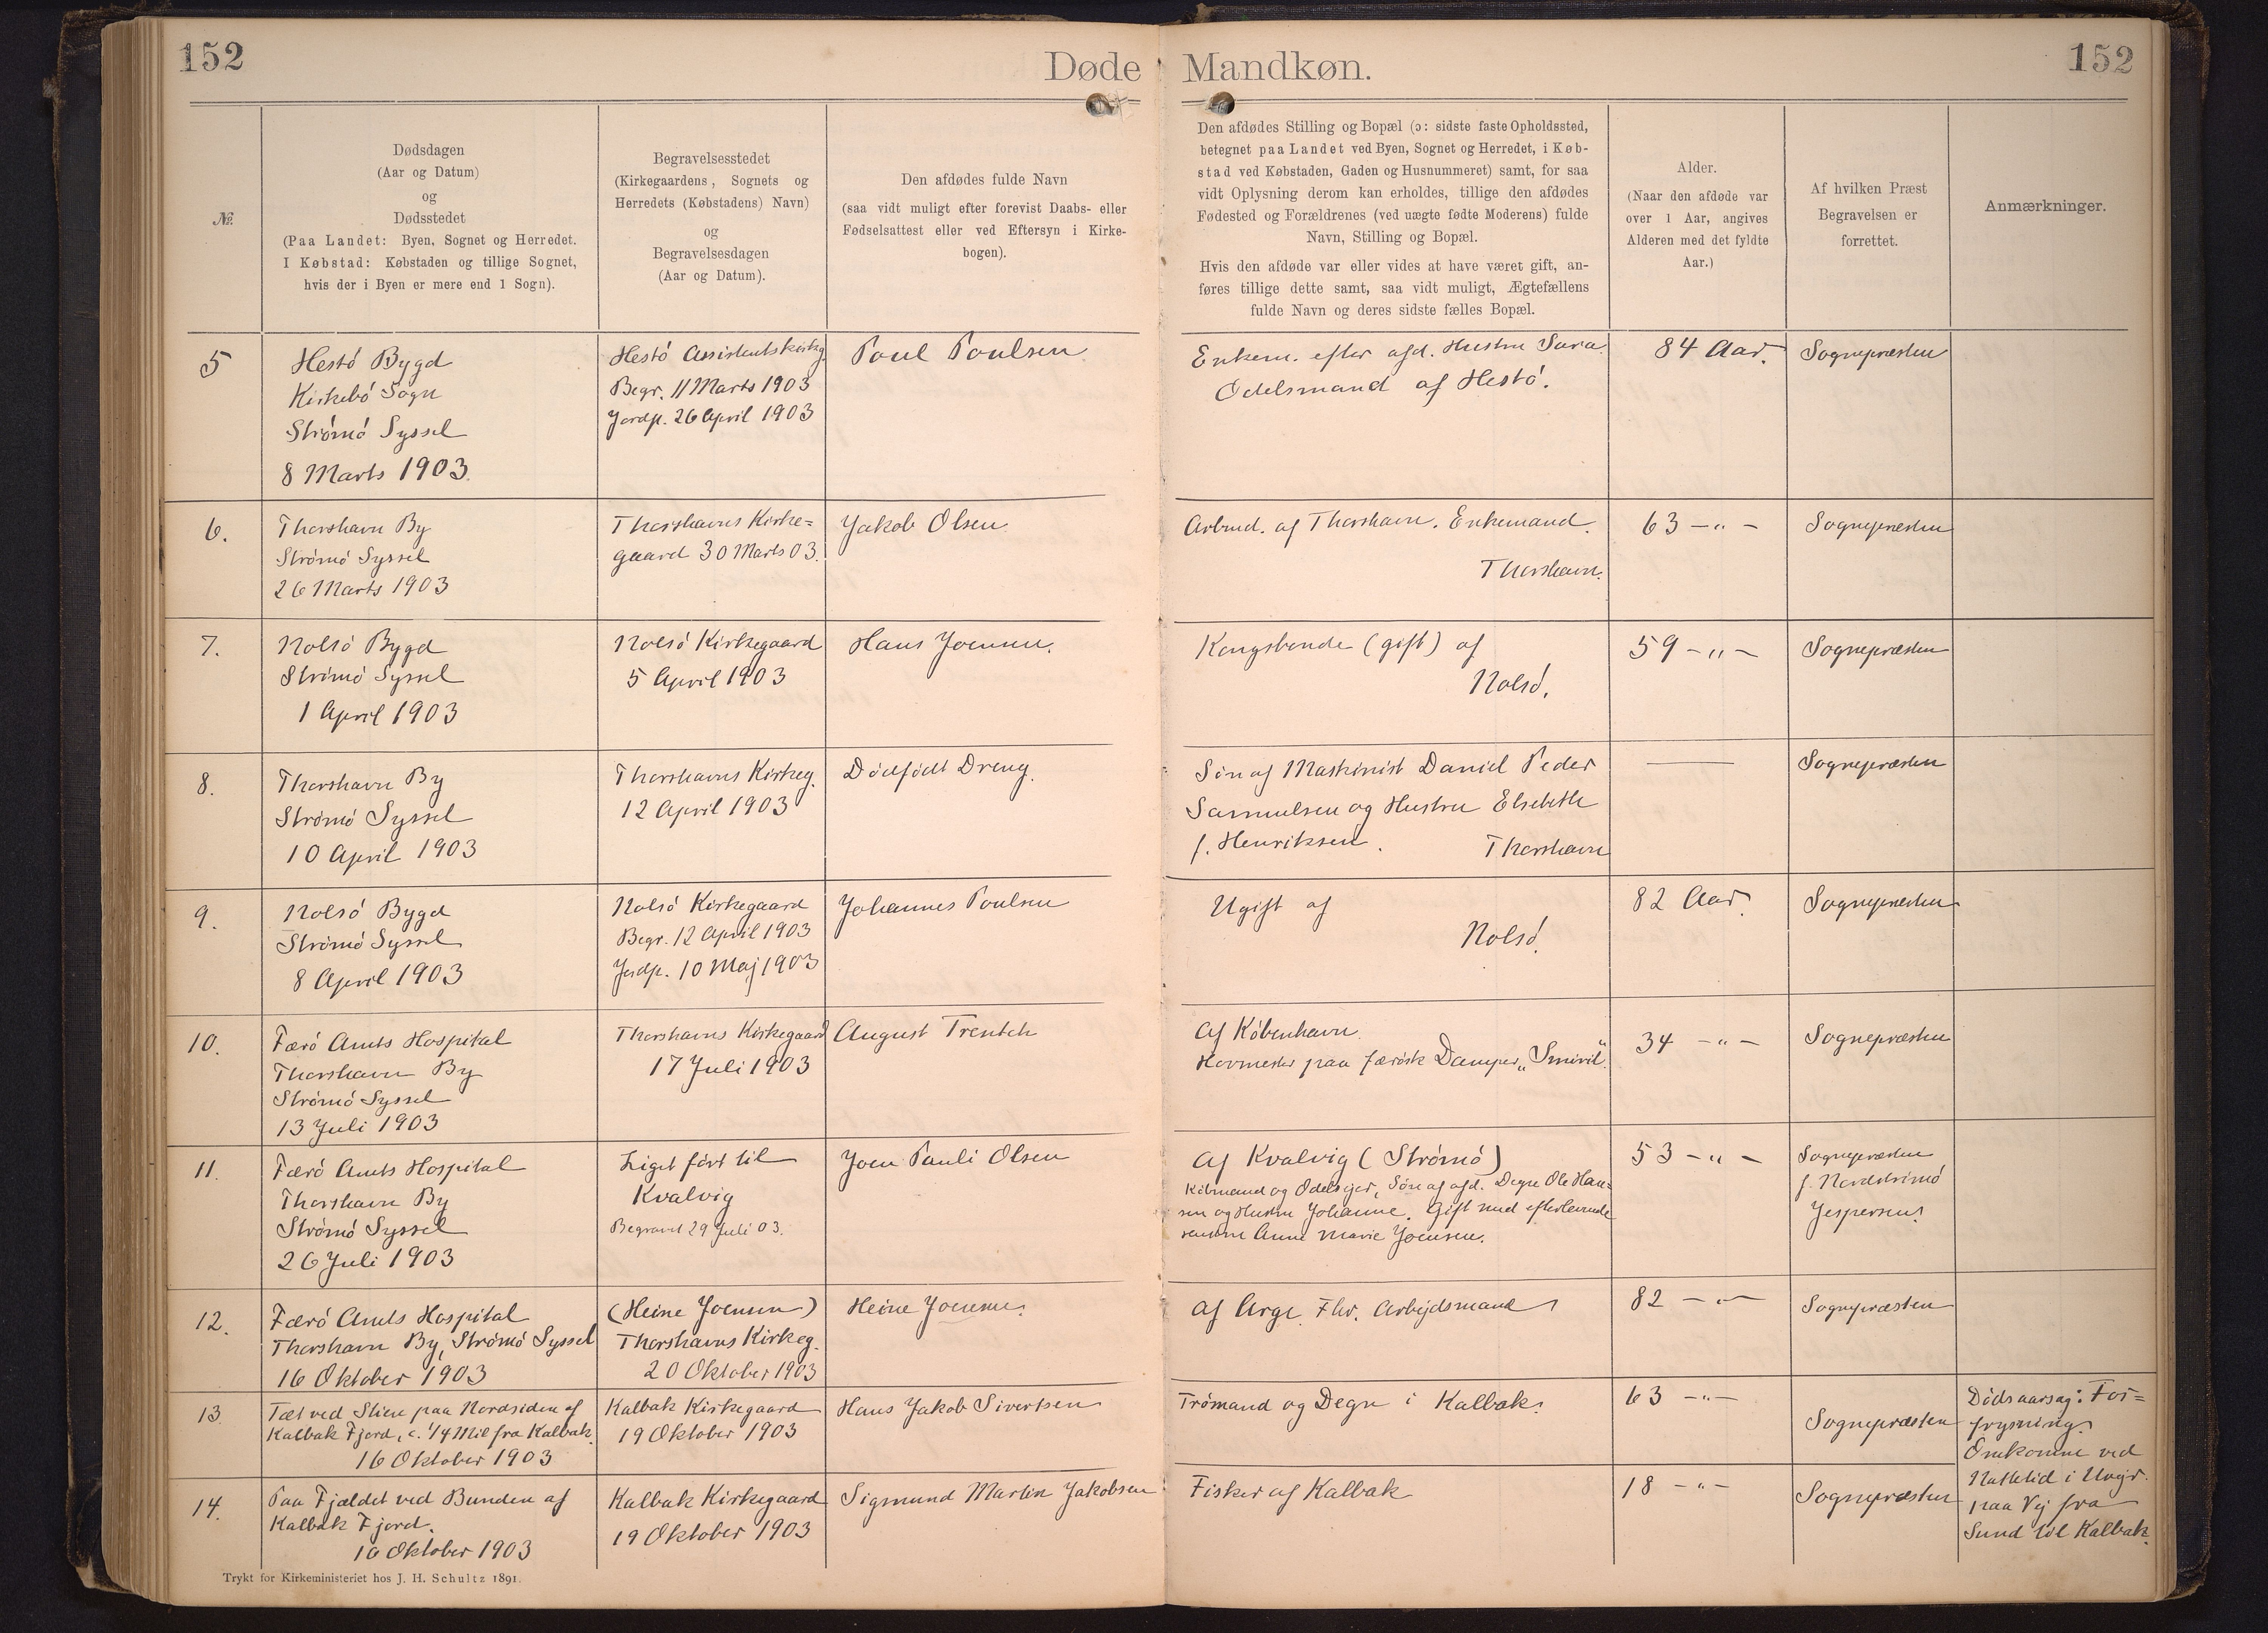 152
Døde Mandkøn.
152
№.
Dødsdagen
(Aar og Datum)
og
Dødsstedet
(Paa Landet: Byen, Sognet og Herredet.
I Købstad: Købstaden og tillige Sognet,
hvis der i Byen er mere end 1 Sogn).
Begravelsesstedet
(Kirkegaardens, Sognets og
Herredets (Købstadens) Navn)
og
Begravelsesdagen
(Aar og Datum).
Den afdødes fulde Navn
(saa vidt muligt efter forevist Daabs- eller
Fødselsattest eller ved Eftersyn i Kirke-
bogen).
Den afdødes Stilling og Bopæl (ɔ: sidste faste Opholdssted,
betegnet paa Landet ved Byen, Sognet og Herredet, i Køb-
stad ved Købstaden, Gaden og Husnummeret) samt, for saa
vidt Oplysning derom kan erholdes, tillige den afdødes
Fødested og Forældrenes (ved uægte fødte Moderens) fulde
Navn, Stilling og Bopæl.
Hvis den afdøde var eller vides at have været gift, an-
føres tillige dette samt, saa vidt muligt, Ægtefællens
fulde Navn og deres sidste fælles Bopæl.
Alder.
(Naar den afdøde var
over 1 Aar, angives
Alderen med det fyldte
Aar.)
Af hvilken Præst
Begravelsen er
forrettet.
Anmærkninger.
5
Hestó Bygd
Kirkebó Sogn
Strómó Syssel
8 Marts 1903.
Hestó Assistentskirkg.
Begr. 11 Marts 1903
Jordp. 26 April 1903
Poul Poulsen
Enkem. efter afd. Hustru Sara.
Odelsmand af Hestó.
84 Aar.
Sognepræsten
6.
Thorshavn By
Strómó Syssel
26 Marts 1903
Thorshavns Kirke=
gaard 30 Marts 03.
Jakob Olsen.
Arbmd. af Thorshavn. Enkemand.
Thorshavn.
63 -"-
Sognepræsten
7.
Nolsó Bygd
Strómó Syssel
1 April 1903
Nolsó Kirkegaard
5 April 1903
Hans Joensen.
Kongsbonde (gift) af
Nolsó.
59 -"-
Sognepræsten
8.
Thorshavn By
Strómó Syssel
10 April 1903
Thorshavns Kirkeg.
12 April 1903
Dódfódt Dreng.
Són af Maskinist Daniel Peder
Samuelsen og Hustru Elsebeth
f. Henriksen. Thorshavn
Sognepræsten
9.
Nolsó Bygd
Strómó Syssel
8 April 1903
Nolsó Kirkegaard
Begr. 12 April 1903
Jordp. 10 Maj 1903
Johannes Poulsen
Ugift af
Nolsó.
82 Aar.
Sognepræsten
10.
Færó Amts Hospital
Thorshavn By
Strómó Syssel
13 Juli 1903
Thorshavns Kirkegaard
17 Juli 1903
August Trentch
Af Kóbenhavn
Hovmester paa færósk Damper „Smiril“.
34 -"-
Sognepræsten
11.
Færó Amts Hospital
Thorshavn By
Strómó Syssel
26 Juli 1903
Liget fórt til
Kvalvig
Begravet 29 Juli 03.
Joen Pauli Olsen
Af Kvalvig (Strómó)
Kóbmand og Odelsejer, Són af afd. Degn Ole Han=
sen og Hustru Johanne. Gift med efterlevende
Anne Marie Joensen.
53 -"-
Sognepræsten
f. Nordstrómó
Jespersen.
12.
Færó Amts Hospital
Thorshavn By, Strómó Syssel
16 Oktober 1903
(Heine Joensen)
Thorshavns Kirkeg.
20 Oktober 1903
Heine Joensen.
Af Arge. Fhv. Arbejdsmand
82 -"-
Sognepræsten
13.
Tæt ved Stien paa Nordsiden af
Kalbak Fjord, c. 1/4 Mil fra Kalbak.
16 Oktober 1903
Kalbak Kirkegaard
19 Oktober 1903
Hans Jakob Sivertsen
Trómand og Degn i Kalbak.
63 -"-
Sognepræsten
Dódsaarsag: For=
frysning.
Omkomne ved
Nattetid i Uvejr
paa Vej fra
Sund til Kalbak.
14.
Paa Fjældet ved Bunden af
Kalbak Fjord.
16 Oktober 1903
Kalbak Kirkegaard
19 Oktober 1903
Sigmund Martin Jakobsen
Fisker af Kalbak
18 -"-
Sognepræsten
Trykt for Kirkeministeriet hos J. H. Schultz 1891.